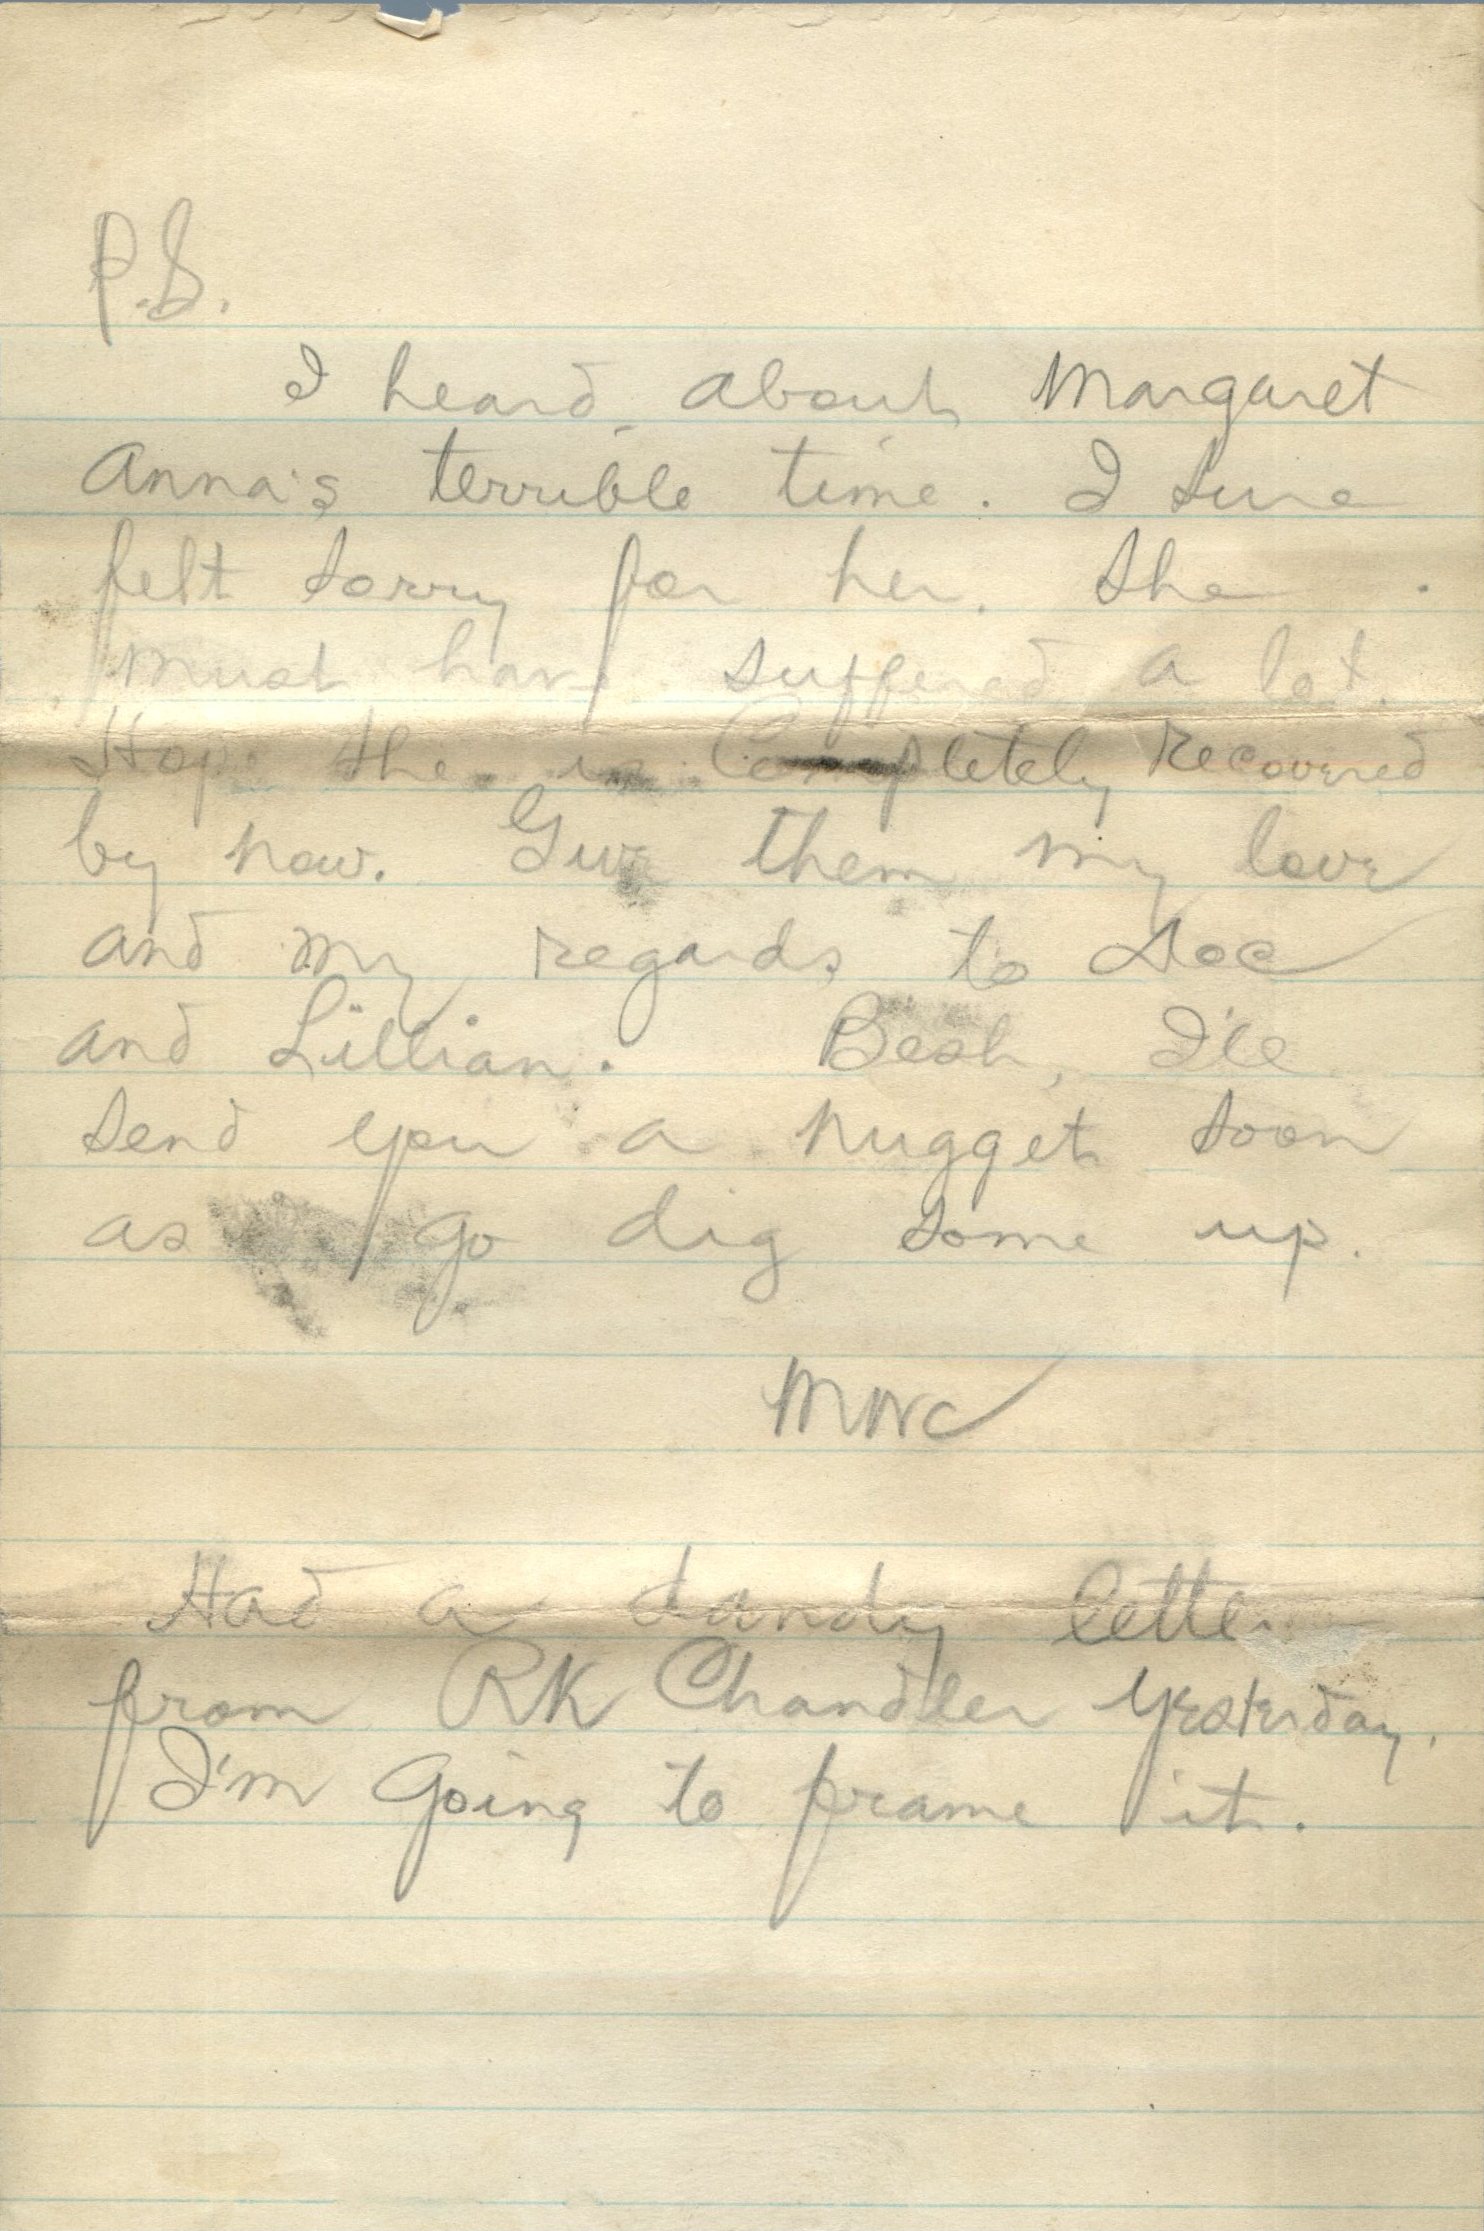 P.S.
I heard about Margaret
Anna's terrible time. I sure
felt sorry for her. She
must have suffered a lot.
Hope she is Completely recovered
by now. Give them my love
and my regards to Doc
and Lillian. Besh, I'le
send you a nugget soon
as go dig some up.
MWC
Had a dandy letter
from RK Chandler yesterday.
I'm going to frame it.